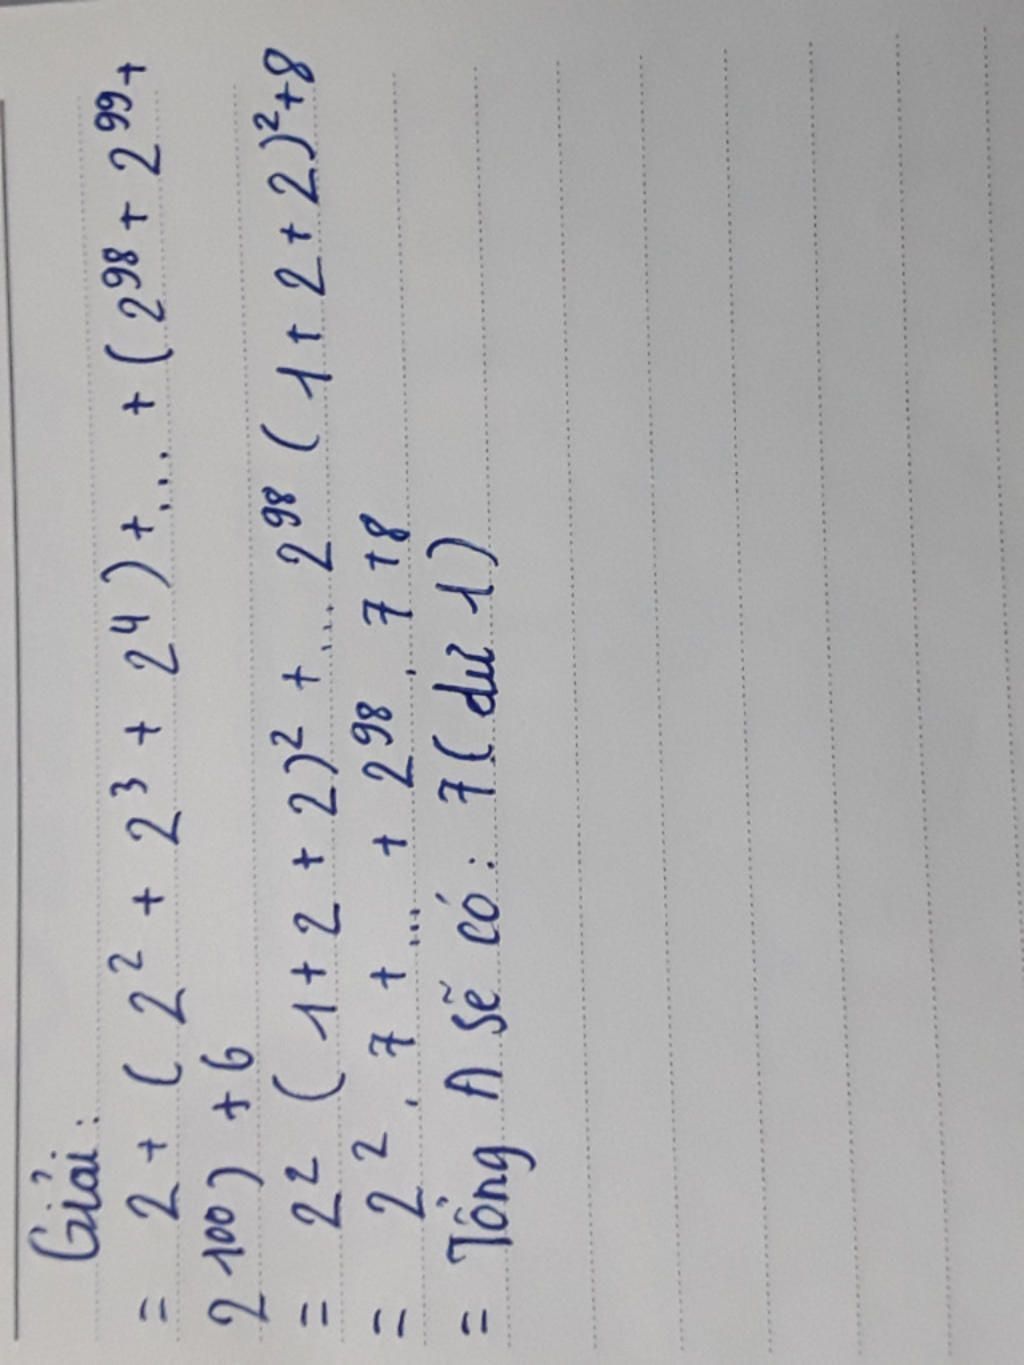 Giải:
= 2 + ( 2² + 2³ + 2⁴ ) + ... + ( 2⁹⁸ + 2⁹⁹ +
2¹⁰⁰ ) + 6
= 2² ( 1 + 2 + 2)² + ... 2⁹⁸ ( 1 + 2 + 2)² + 8
= 2² . 7 + ... + 2⁹⁸ . 7 + 8
= Tổng A sẽ có : 7 ( dư 1 )